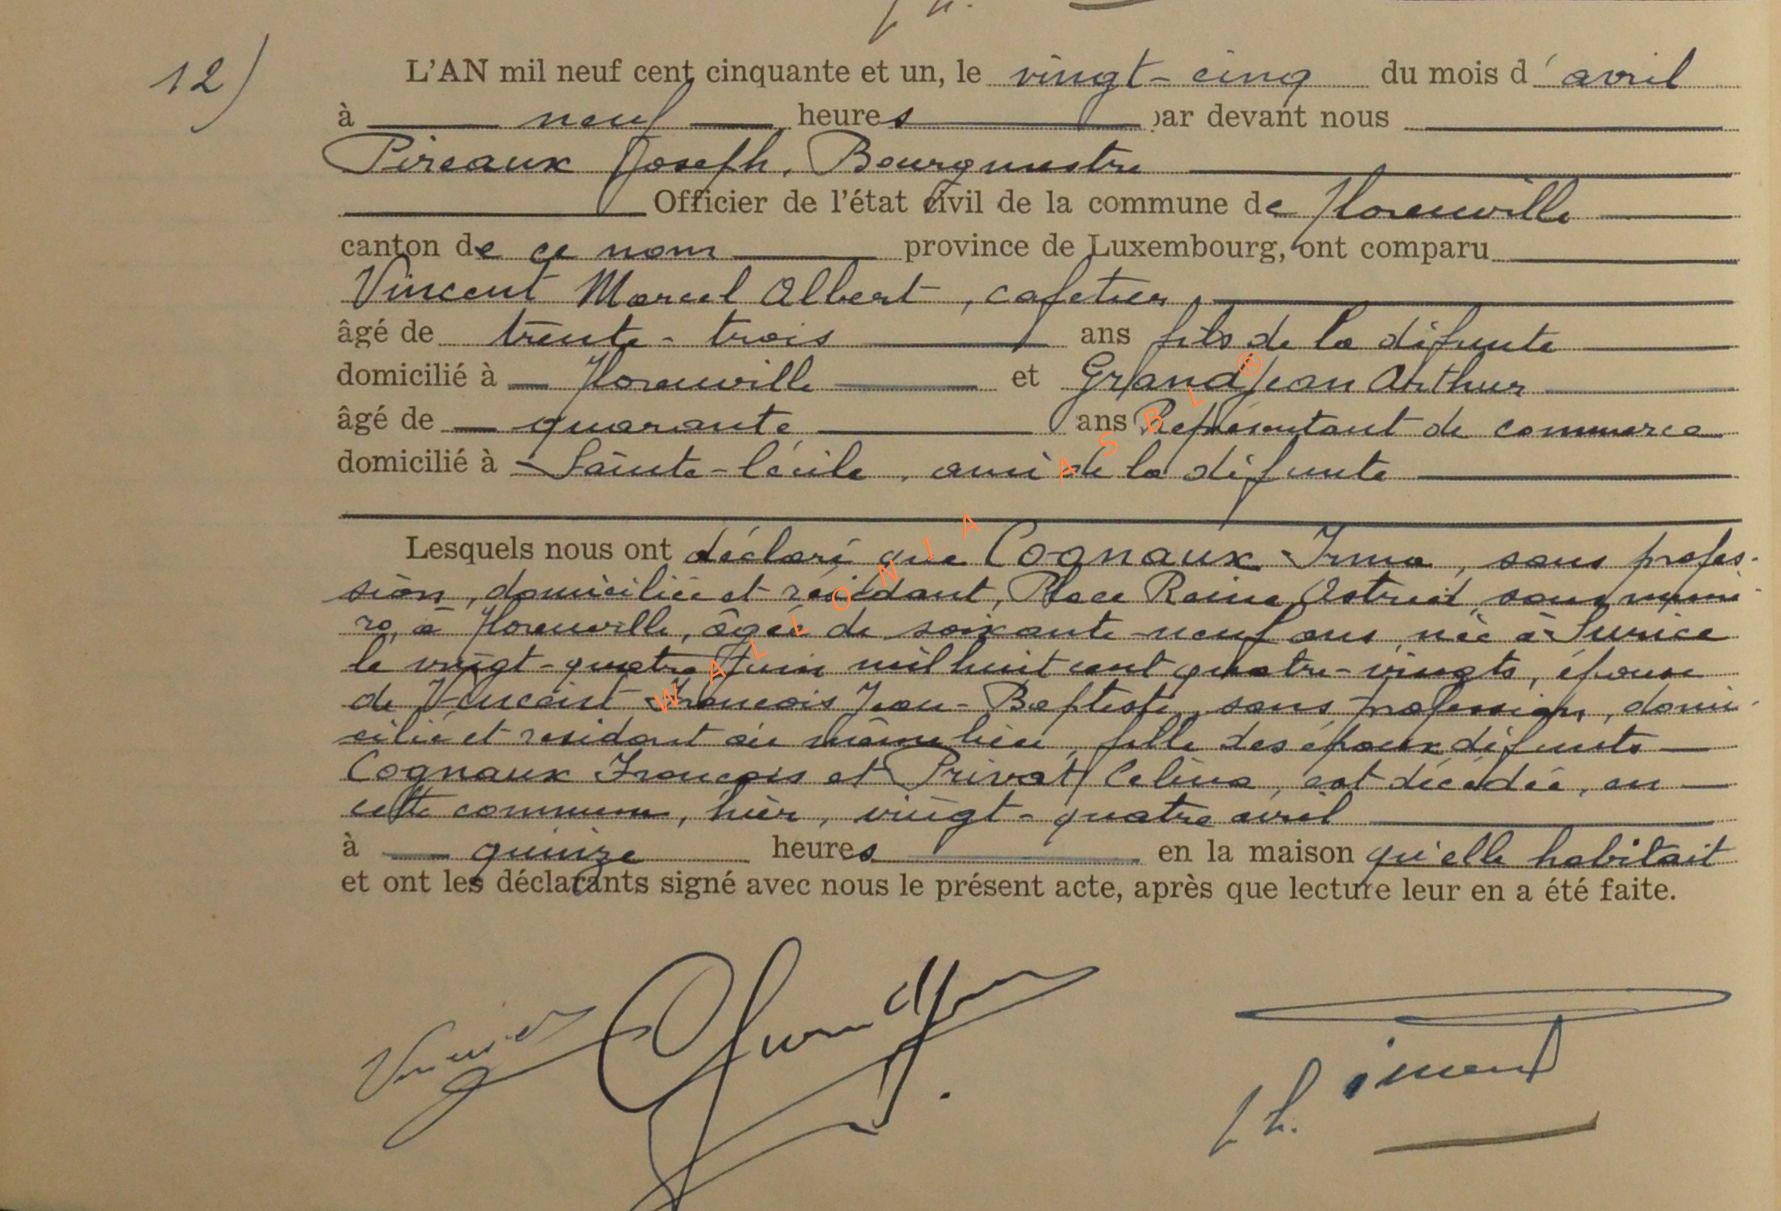 12)
L'AN mil neuf cent cinquante et un, le vingt-cinq du mois d'avril
à neuf heures par devant nous
Pireaux Joseph, Bourgmestre
Officier de l'état civil de la commune de Florenville
canton de ce nom province de Luxembourg, ont comparu
Vincent Marcel Albert, cafetier,
âgé de trente-trois ans fils de la défunte
domicilié à Florenville et Grandjean Arthur
âgé de quarante ans Représentant de commerce
domicilié à Sainte-Cécile, ami de la défunte
Lesquels nous ont déclaré que Cognaux Irma, sans profes-
sion, domiciliée et résidant, Place Reine Astrid, sans numé-
ro, à Florenville, âgée de soixante-neuf ans née à Surice
le vingt-quatre juin mil huit cent quatre-vingts, épouse
de Vincent François Jean-Baptiste, sans profession, domi-
cilié et résidant au même lieu, fille des époux défunts
Cognaux François et Privat Celina, est décédée, en
cette commune, hier, vingt-quatre avril
à quinze heures en la maison qu'elle habitait
et ont les déclarants signé avec nous le présent acte, après que lecture leur en a été faite.
WALLONIA ASBL ®